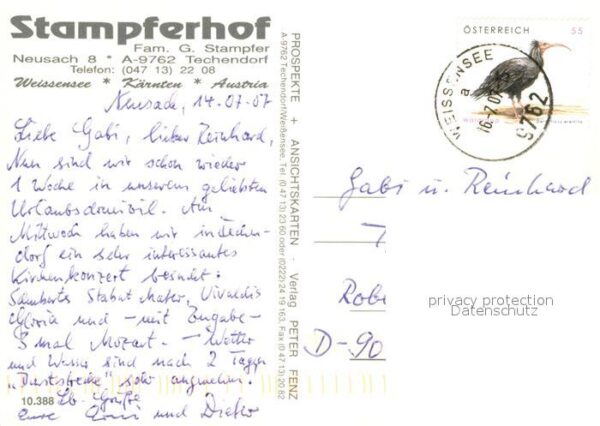 Stampferhof
Fam. G. Stampfer
Neusach 8 * A-9762 Techendorf
Telefon: (047 13) 22 08
Weissensee * Kärnten * Austria
Neusach, 14.07.07
Liebe Gabi, lieber Reinhard,
Nun sind wir schon wieder
1 Woche in unserem geliebten
Urlaubsdomizil. Am
Mittwoch haben wir in Techen-
dorf ein sehr interessantes
Kirchenkonzert besucht:
Schuberts Stabat Mater, Vivaldis
Gloria und - mit Zugabe -
3 mal Mozart. - Wetter
und Wasser sind nach 2 Tagen
"Durststrecke" sehr angenehm.
Lb. Grüße
eure und Dieter
10.388
PROSPEKTE + ANSICHTSKARTEN - Verlag PETER FENZ
A-9762 Techendorf/Weißensee, Tel. (0 47 13) 23 60 oder (0222) 24 19 163, Fax (0 47 13) 20 82
ÖSTERREICH 55
WEISSENSEE
a
16.-7.07
9762
Gabi u. Reinhard
T
Robe
D-90
privacy protection
Datenschutz